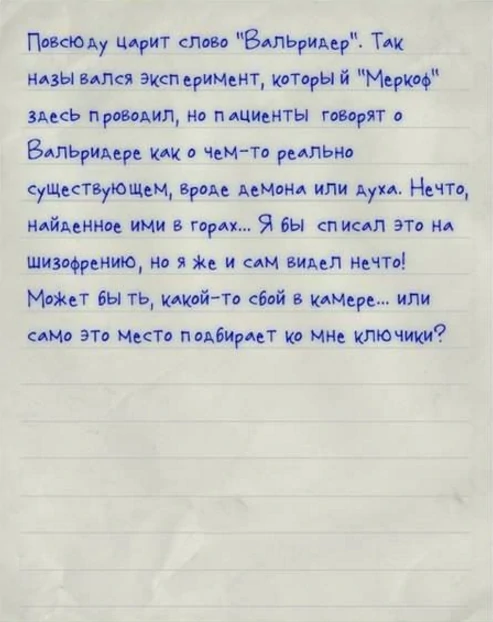 Повсюду царит слово "Вальридер". Так
назывался эксперимент, который "Меркоф"
здесь проводил, но пациенты говорят о
Вальридере как о чем-то реально
существующем, вроде демона или духа. Нечто,
найденное ими в горах... Я бы списал это на
шизофрению, но я же и сам видел нечто!
Может быть, какой-то сбой в камере... или
само это место подбирает ко мне ключики?